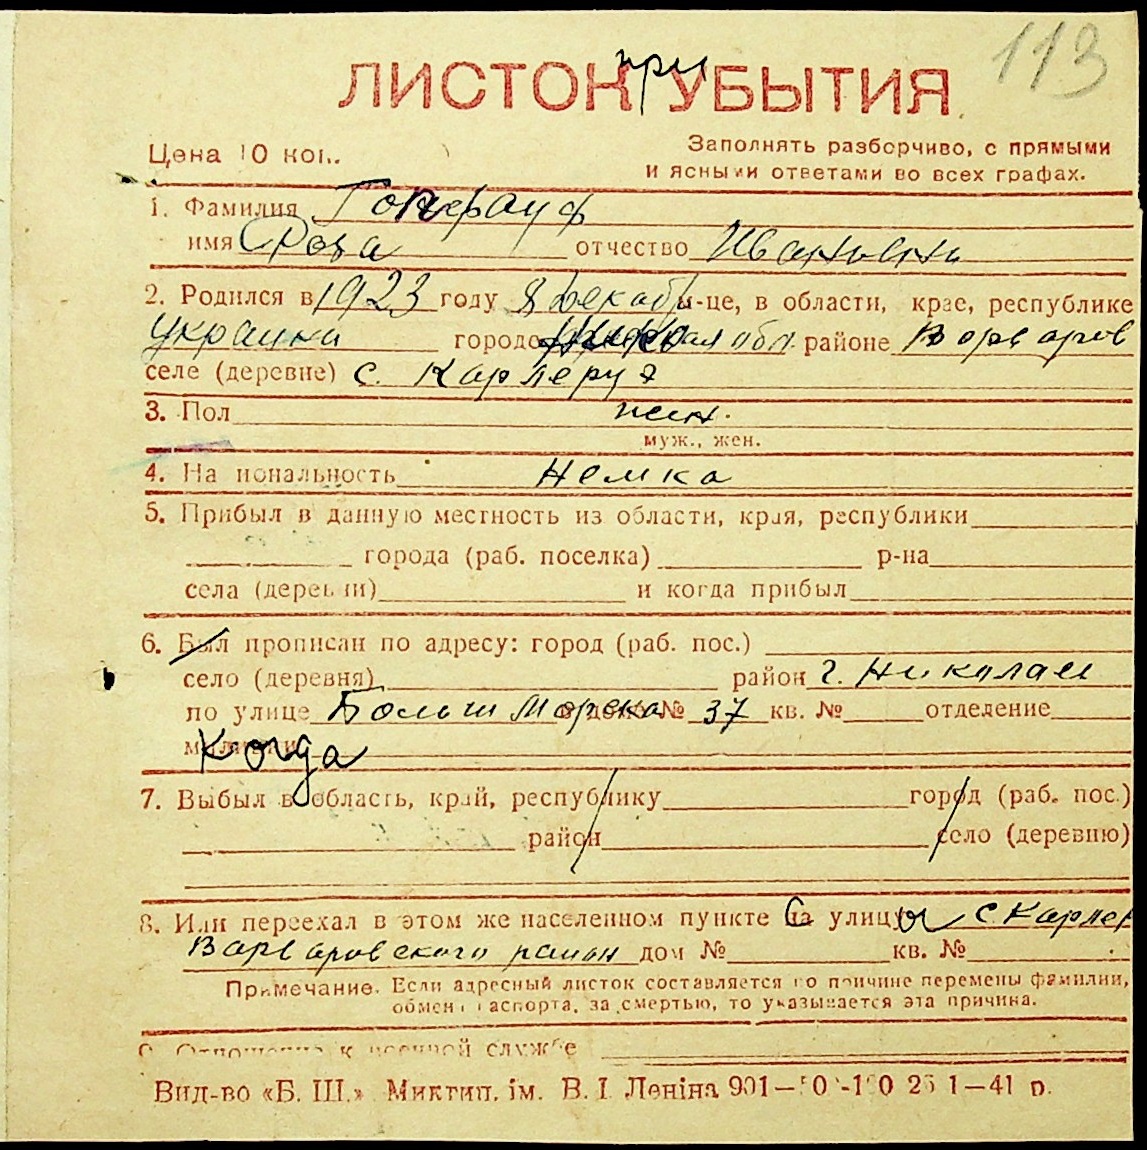 113
при
ЛИСТОК УБЫТИЯ
Цена 10 коп.
Заполнять разборчиво, с прямыми
и ясными ответами во всех графах.
1. Фамилия
имя Роза отчество Ивановна
2. Родился в 1923 году 8 декабр м-це, в области, крае, республике
Украина городе обл. районе Варваров
селе (деревне) с. Карлеруэ
3. Пол жен.
муж., жен.
4. Национальность Немка
5. Прибыл в данную местность из области, края, республики
города (раб. поселка) р-на
села (деревни) и когда прибыл
6. Был прописан по адресу: город (раб. пос.)
село (деревня) район г. Николаев
по улице Больш Морска дом № 37 кв. № отделение
милиции Когда
7. Выбыл в область, край, республику город (раб. пос.)
район село (деревню)
8. Или переехал в этом же населенном пункте на улицу с Карлер
Варваровского район дом № кв. №
Примечание. Если адресный листок составляется по причине перемены фамилии,
обмена паспорта, за смертью, то указывается эта причина.
9. Отношение к военной службе
Вид-во «Б. Ш.» Миктип. ім. В. І. Леніна 1—41 р.